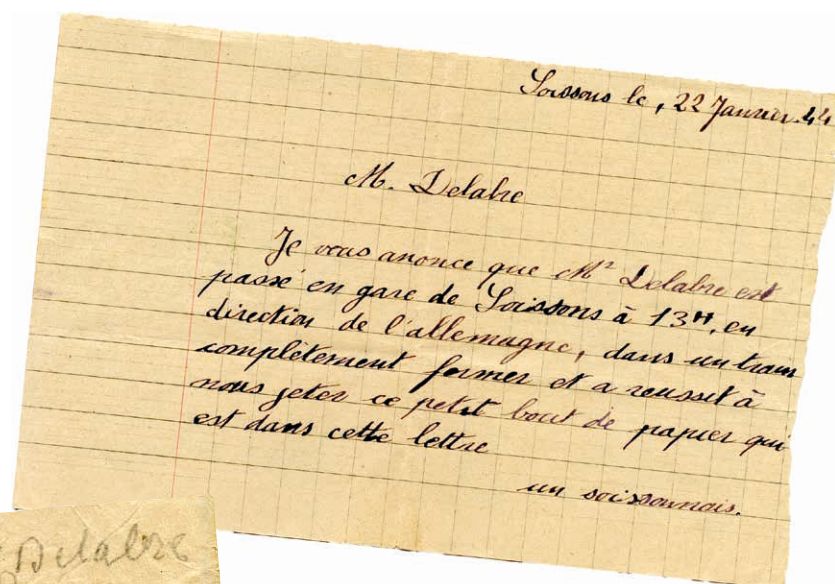 Soissons le, 22 Janvier 44
M. Delabre
Je vous anonce que Mr Delabre est
passé en gare de Soissons à 13H, en
direction de l'allemagne, dans un train
complètement fermer et a reussit à
nous jeter ce petit bout de papier qui
est dans cette lettre
un soissonnais.
Delabre